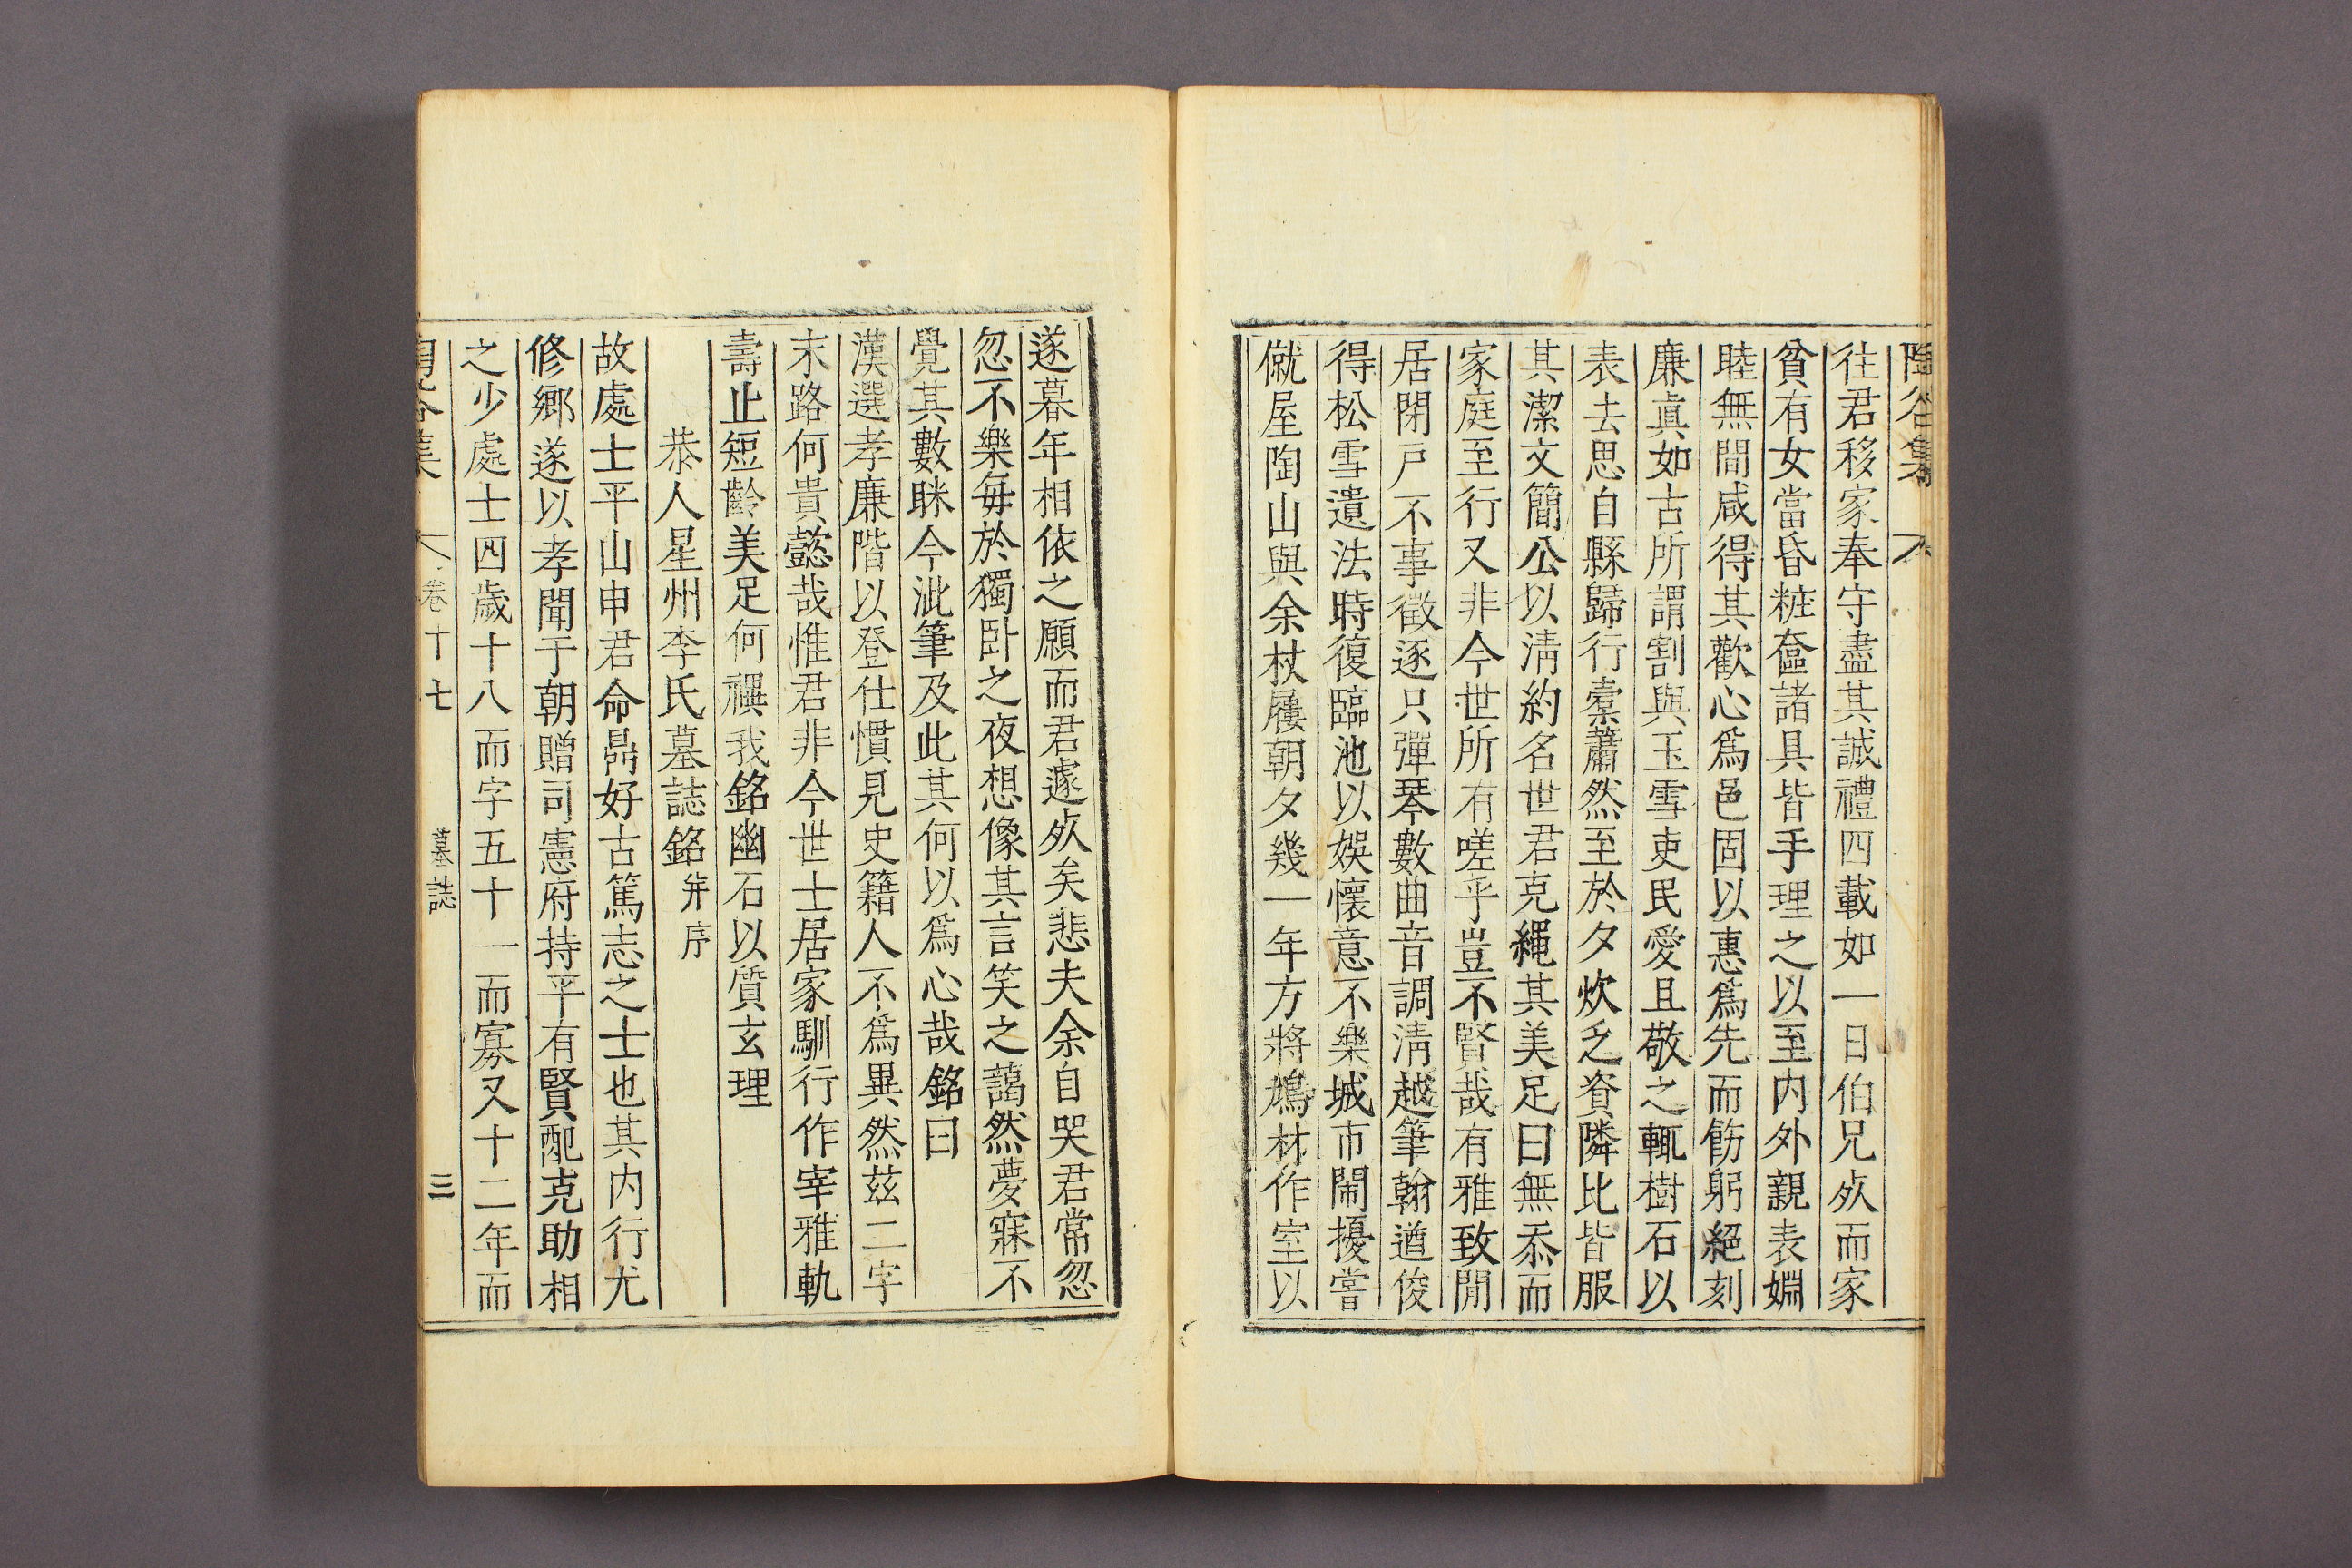 陶谷集
往君移家奉守盡其誠禮四載如一日伯兄歿而家
貧有女當昏粧奩諸具皆手理之以至内外親表婣
睦無間咸得其歡心爲邑固以惠爲先而飭躬絕刻
廉眞如古所謂割與玉雪吏民愛且敬之輒樹石以
表去思自縣歸行橐蕭然至於夕炊乏資隣比皆服
其潔文簡公以淸約名世君克繩其美足曰無忝而
家庭至行又非今世所有嗟乎豈不賢哉有雅致閒
居閉戶不事徵逐只彈琴數曲音調淸越筆翰遒俊
得松雪遺法時復臨池以娛懷意不樂城市鬧擾嘗
僦屋陶山與余杖屨朝夕幾一年方將鳩材作室以
遂暮年相依之願而君遽歿矣悲夫余自哭君常忽
忽不樂每於獨卧之夜想像其言笑之藹然夢寐不
覺其數眯今泚筆及此其何以爲心哉銘曰
漢選孝廉階以登仕慣見史籍人不爲異然玆二字
末路何貴懿哉惟君非今世士居家馴行作宰雅軌
壽止短齡美足何禩我銘幽石以質玄理
恭人星州李氏墓誌銘 并序
故處士平山申君命鼎好古篤志之士也其内行尤
修鄉遂以孝聞于朝贈司憲府持平有賢配克助相
之少處士四歲十八而字五十一而寡又十二年而
陶谷集 卷丁七 墓誌 三